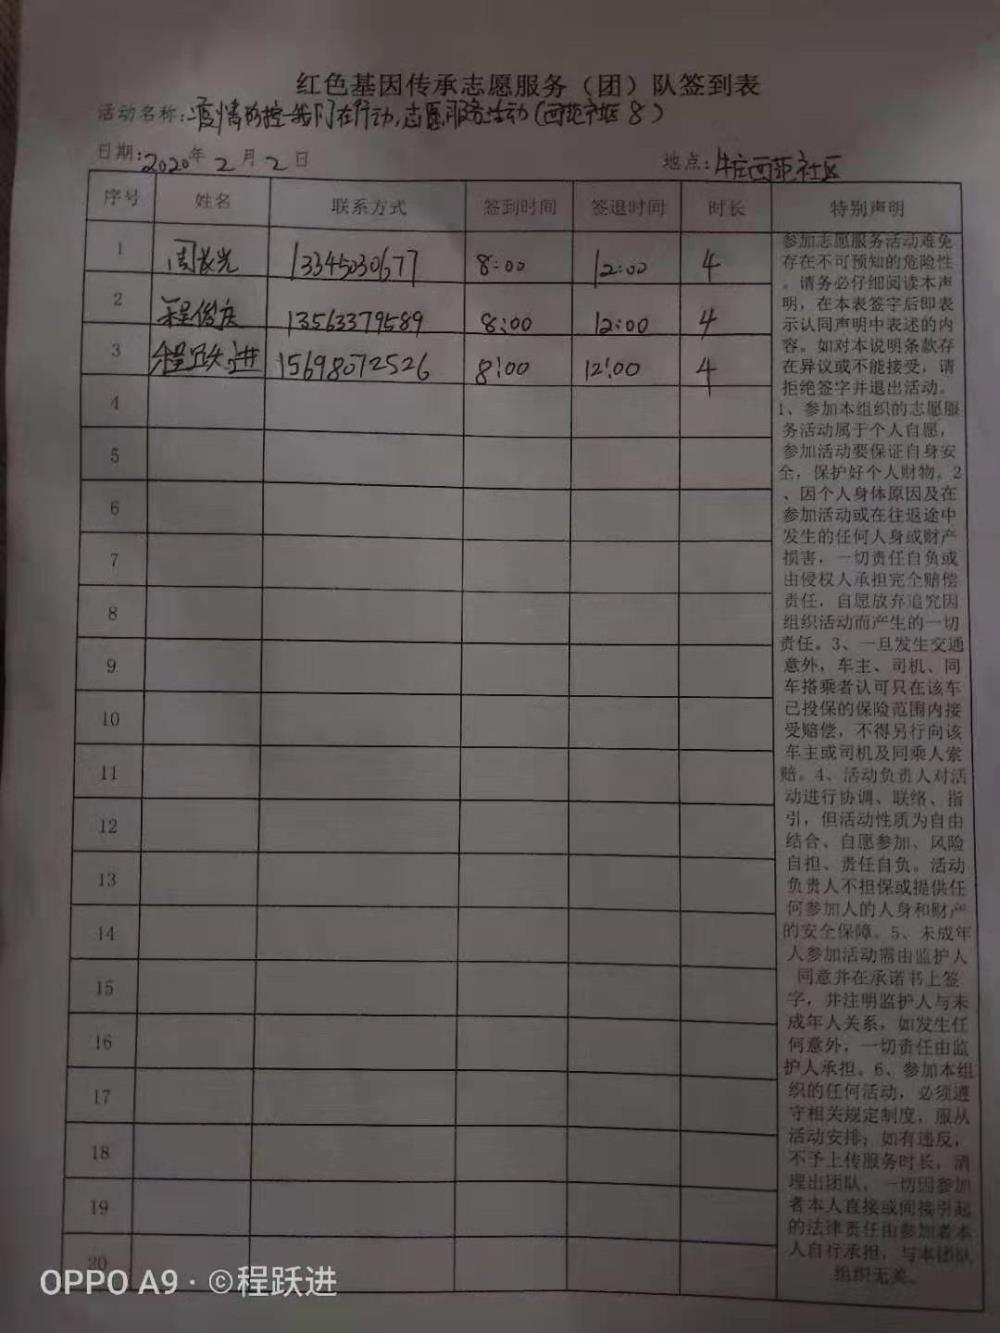 红色基因传承志愿服务（团）队签到表
活动名称：疫情防控我们在行动，志愿服务活动（西范社区8）
日期：2020年2月2日 地点：牛庄西范社区
序号 姓名 联系方式 签到时间 签退时间 时长 特别声明
1 周长光 13345030677 8:00 12:00 4
2 程俊庆 13563379589 8:00 12:00 4
3 程跃进 15698072526 8:00 12:00 4
4
5
6
7
8
9
10
11
12
13
14
15
16
17
18
19
20
参加志愿服务活动难免
存在不可预知的危险性
。请务必仔细阅读本声
明，在本表签字后即表
示认同声明中表述的内
容。如对本说明条款存
在异议或不能接受，请
拒绝签字并退出活动。
1、参加本组织的志愿服
务活动属于个人自愿，
参加活动要保证自身安
全，保护好个人财物。2
、因个人身体原因及在
参加活动或在往返途中
发生的任何人身或财产
损害，一切责任自负或
由侵权人承担完全赔偿
责任，自愿放弃追究因
组织活动而产生的一切
责任。3、一旦发生交通
意外，车主、司机、同
车搭乘者认可只在该车
已投保的保险范围内接
受赔偿，不得另行向该
车主或司机及同乘人索
赔。4、活动负责人对活
动进行协调、联络、指
引，但活动性质为自由
结合、自愿参加、风险
自担、责任自负。活动
负责人不担保或提供任
何参加人的人身和财产
的安全保障。5、未成年
人参加活动需由监护人
同意并在承诺书上签
字，并注明监护人与未
成年人关系，如发生任
何意外，一切责任由监
护人承担。6、参加本组
织的任何活动，必须遵
守相关规定制度，服从
活动安排；如有违反，
不予上传服务时长，清
理出团队。一切因参加
者本人直接或间接引起
的法律责任由参加者本
人自行承担，与本团队
组织无关。
OPPO A9 · ©程跃进